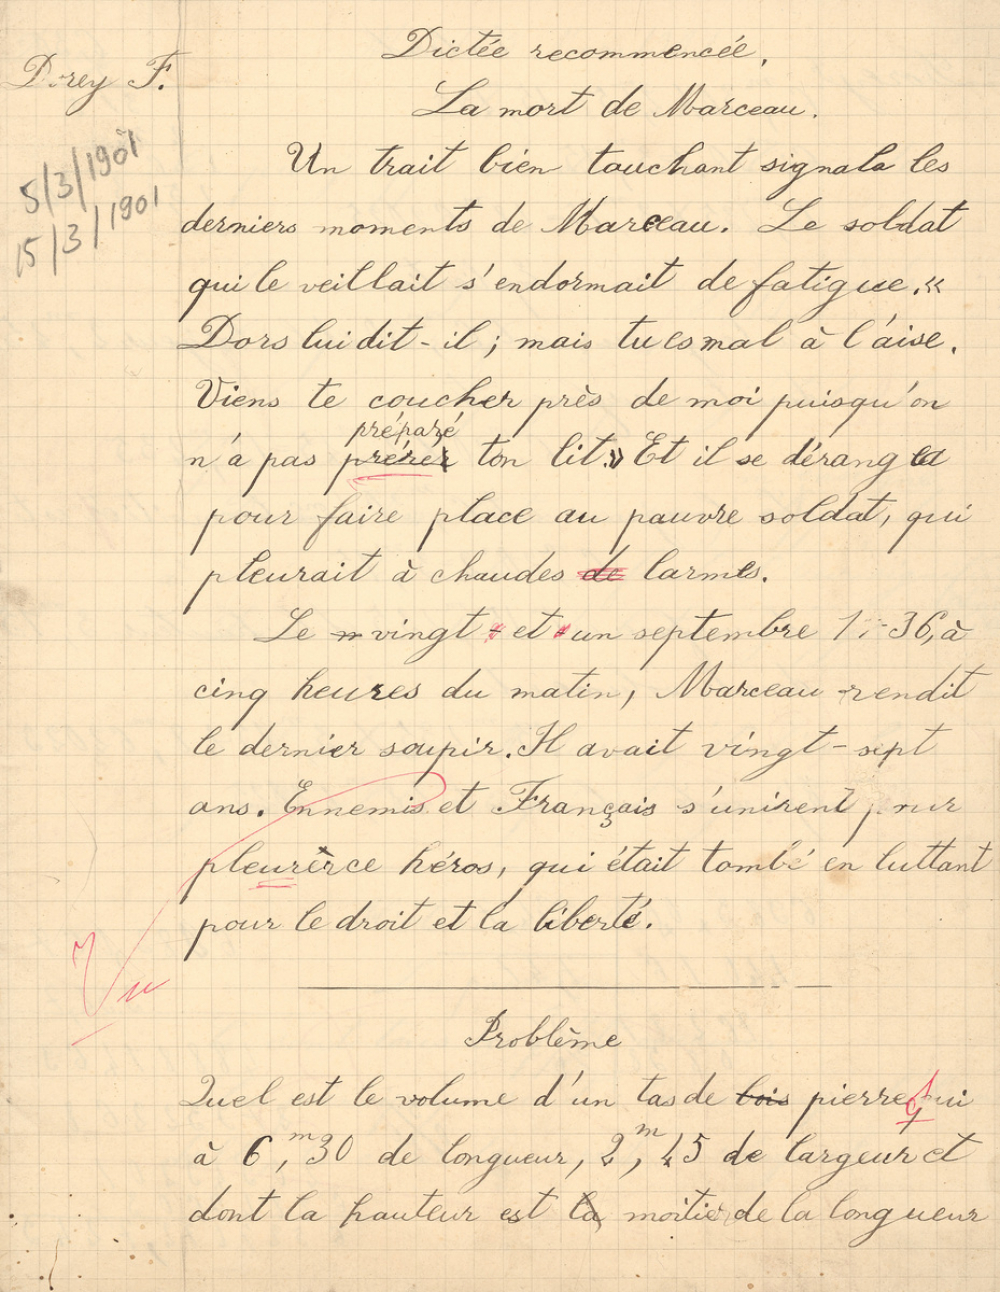 Dictée recommencée.
Dorey F.
La mort de Marceau.
5/3/1901
15/3/1901
Un trait bien touchant signala les
derniers moments de Marceau. Le soldat
qui le veillait s'endormait de fatigue. «
Dors lui dit-il ; mais tu es mal à l'aise.
Viens te coucher près de moi puisqu'on
préparé
n'a pas ton lit.» Et il se dérangea
pour faire place au pauvre soldat, qui
pleurait à chaudes de larmes.
Le vingt et un septembre 36, à
cinq heures du matin, Marceau rendit
le dernier soupir. Il avait vingt-sept
ans. Ennemis et Français s'unirent pour
pleurèrce héros, qui était tombé en luttant
pour le droit et la liberté.
Vu
Problème
Quel est le volume d'un tas de bois pierre qui
à 6,m30 de longueur, 2m, 45 de largeur et
dont la hauteur est la moitié de la longueur